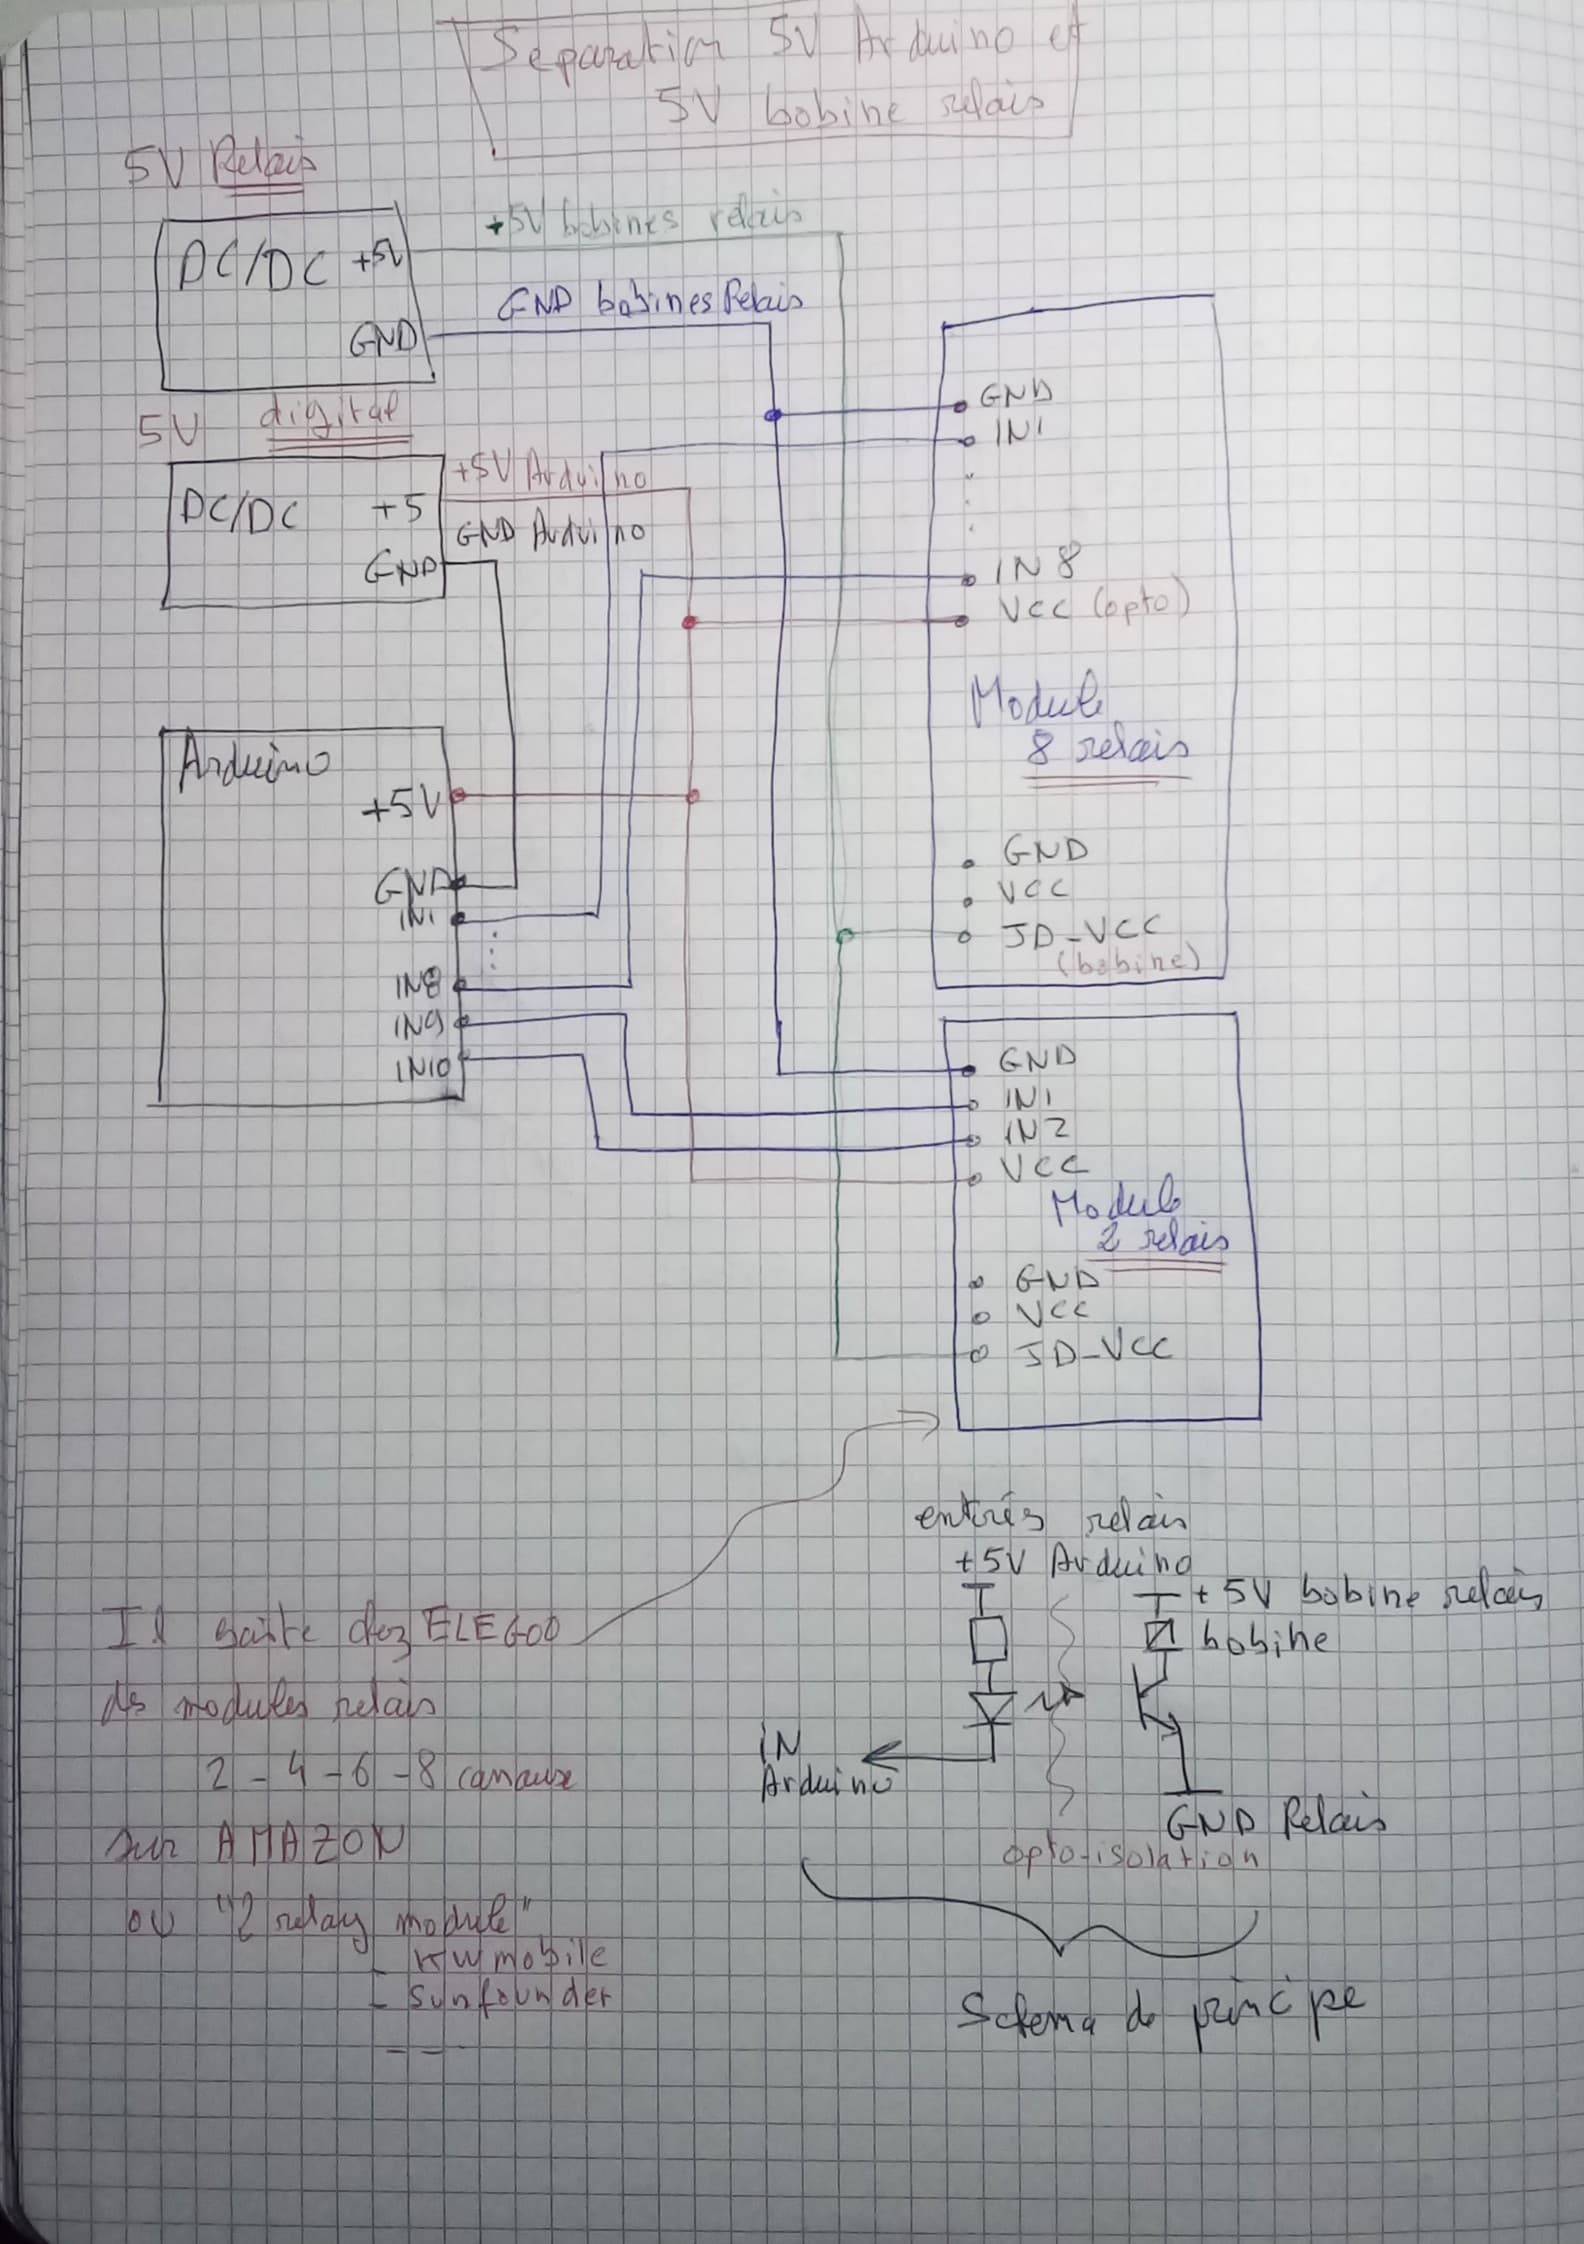 Separation 5V Arduino et
5V bobine relais
5V Relais
DC/DC +5V
GND
+5V bobines relais
GND bobines Relais
5V digital
DC/DC +5
GND
+5V Arduino
GND Arduino
GND
IN1
IN8
VCC (opto)
Module
8 relais
GND
VCC
JD-VCC
(bobine)
Arduino
+5V
GND
IN1
IN8
IN9
IN10
GND
IN1
IN2
VCC
Module
2 relais
GND
VCC
JD-VCC
entrés relais
+5V Arduino
+5V bobine relais
bobine
IN
Arduino
GND Relais
opto-isolation
Schema de principe
Il chez ELEGOO
des modules relais
2 - 4 - 6 - 8 canaux
sur AMAZON
ou "2 relay module"
- kwmobile
- sunfounder